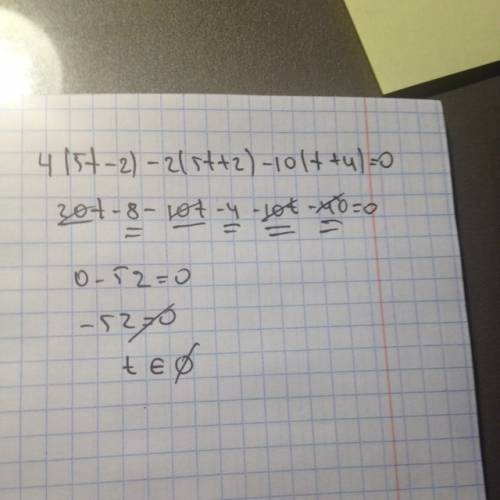 4(5t-2)-2(5t+2)-10(t+4)=0
20t-8-10t-4-10t-40=0
0-52=0
-52≠0
t∈∅